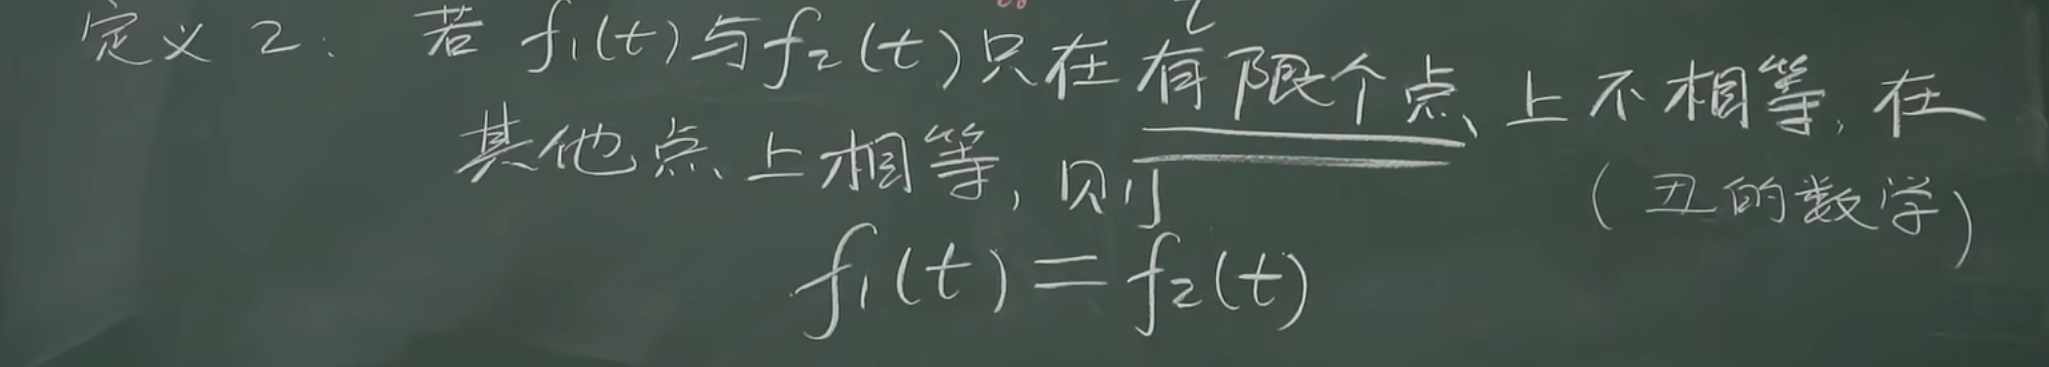 定义2: 若 f₁(t)与f₂(t)只在有限个点上不相等, 在
其他点上相等, 则
(丑的数学)
f₁(t)=f₂(t)